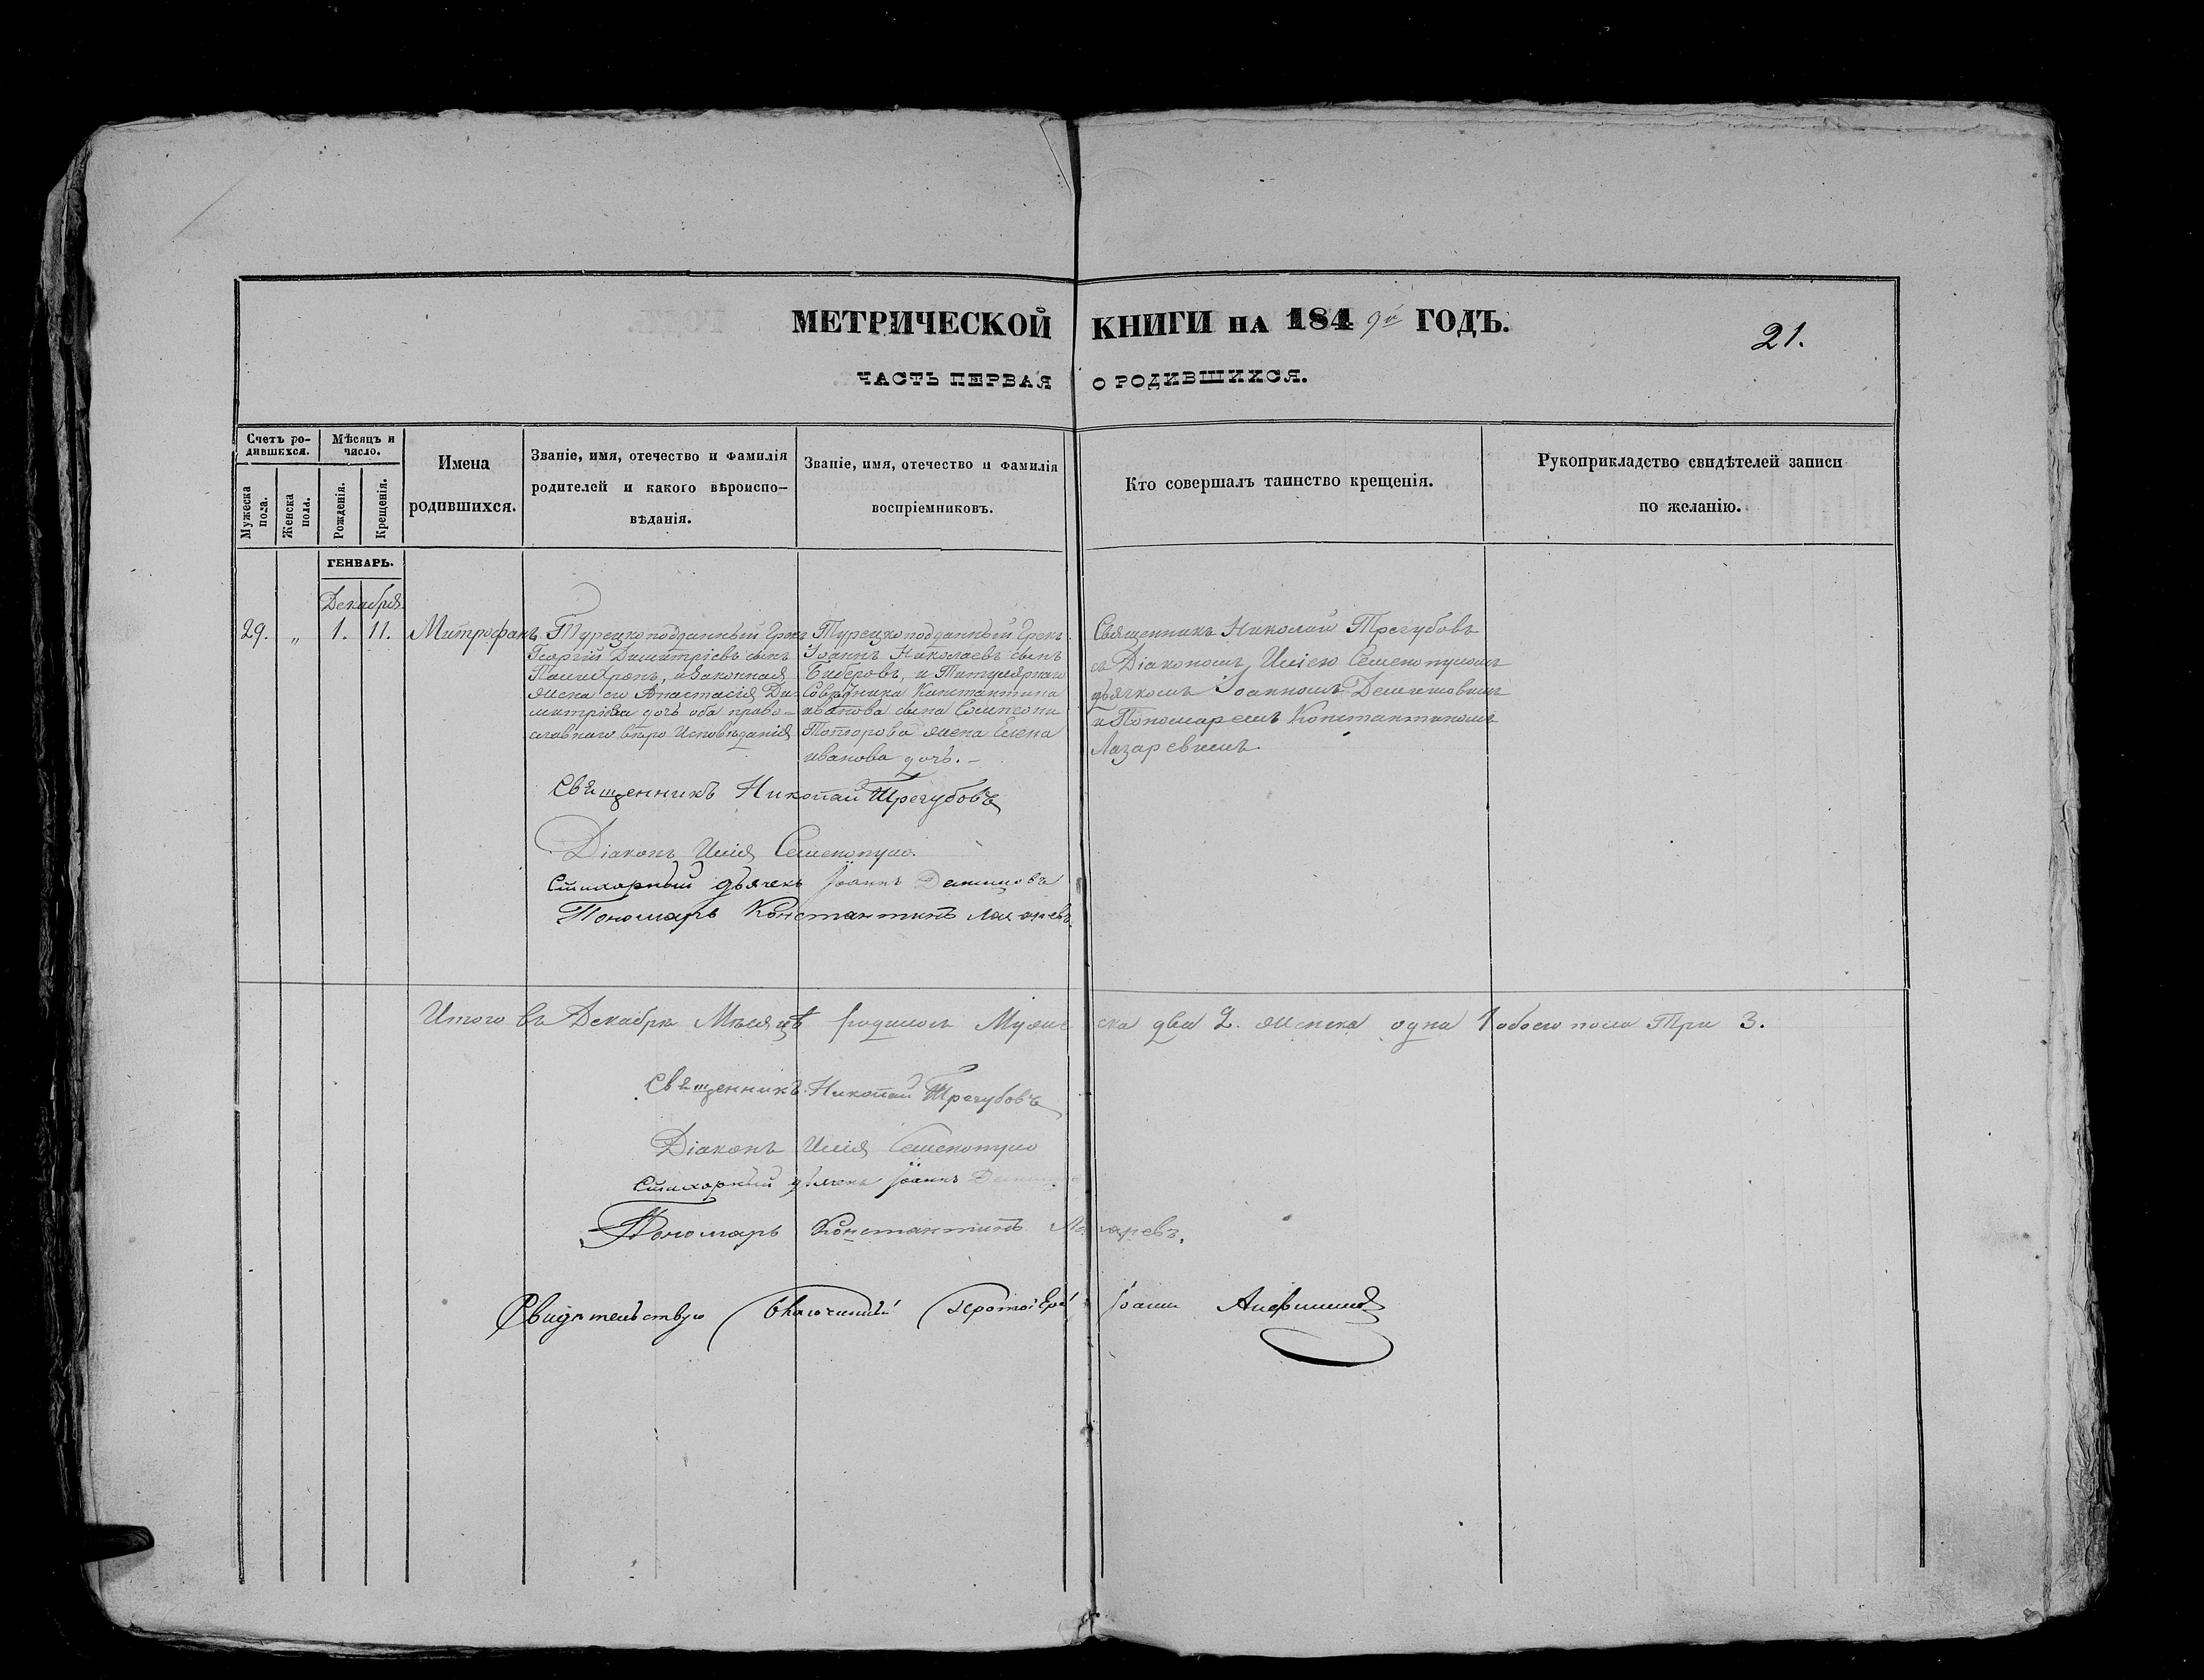 МЕТРИЧЕСКОЙ КНИГИ НА 1849й ГОДЪ.
21.
ЧАСТЬ ПЕРВАЯ О РОДИВШИХСЯ.
Счетъ ро-
дившихся.
Мужеска пола.
Женска пола.
Мѣсяцъ и
число.
Рожденія.
Крещенія.
Имена
родившихся.
Званіе, имя, отечество и фамилія
родителей и какого вѣроиспо-
вѣданія.
Званіе, имя, отечество и фамилія
воспріемниковъ.
Кто совершалъ таинство крещенія.
Рукоприкладство свидѣтелей записи
по желанію.
ГЕНВАРЬ.
Декабря
29. „ 1. 11. Митрофанъ.
Турецкоподданный Грекъ
Георгій Димитріевъ сынъ
и законная
жена его Анастасія Ди-
митріева дочь оба право-
славнаго вѣро Исповѣданія
Турецкоподданный Грекъ
Іоаннъ Николаевъ сынъ
Биберовъ, и Титулярнаго
Совѣтника Константина
иванова сына
жена Елена
иванова дочь.-
Священникъ Николай Трегубовъ
съ Діакономъ Иліею
дьячкомъ Іоанномъ
и Пономаремъ Константиномъ
Лазаревимъ.
Священникъ Николай Трегубовъ
Діаконъ Илія
Стихарный дьячекъ Іоаннъ
Пономарь Константинъ Лазаревъ.
Итого въ Декабрѣ Мѣсяцѣ родилось Мужеска два 2. женска одна 1 обоего пола Три 3.
Священникъ Николай Трегубовъ
Діаконъ Илія
Стихарный дьячекъ Іоаннъ
Пономарь Константинъ Лазаревъ.
Свидѣтельствую Благочинный Протоіерей Іоаннъ